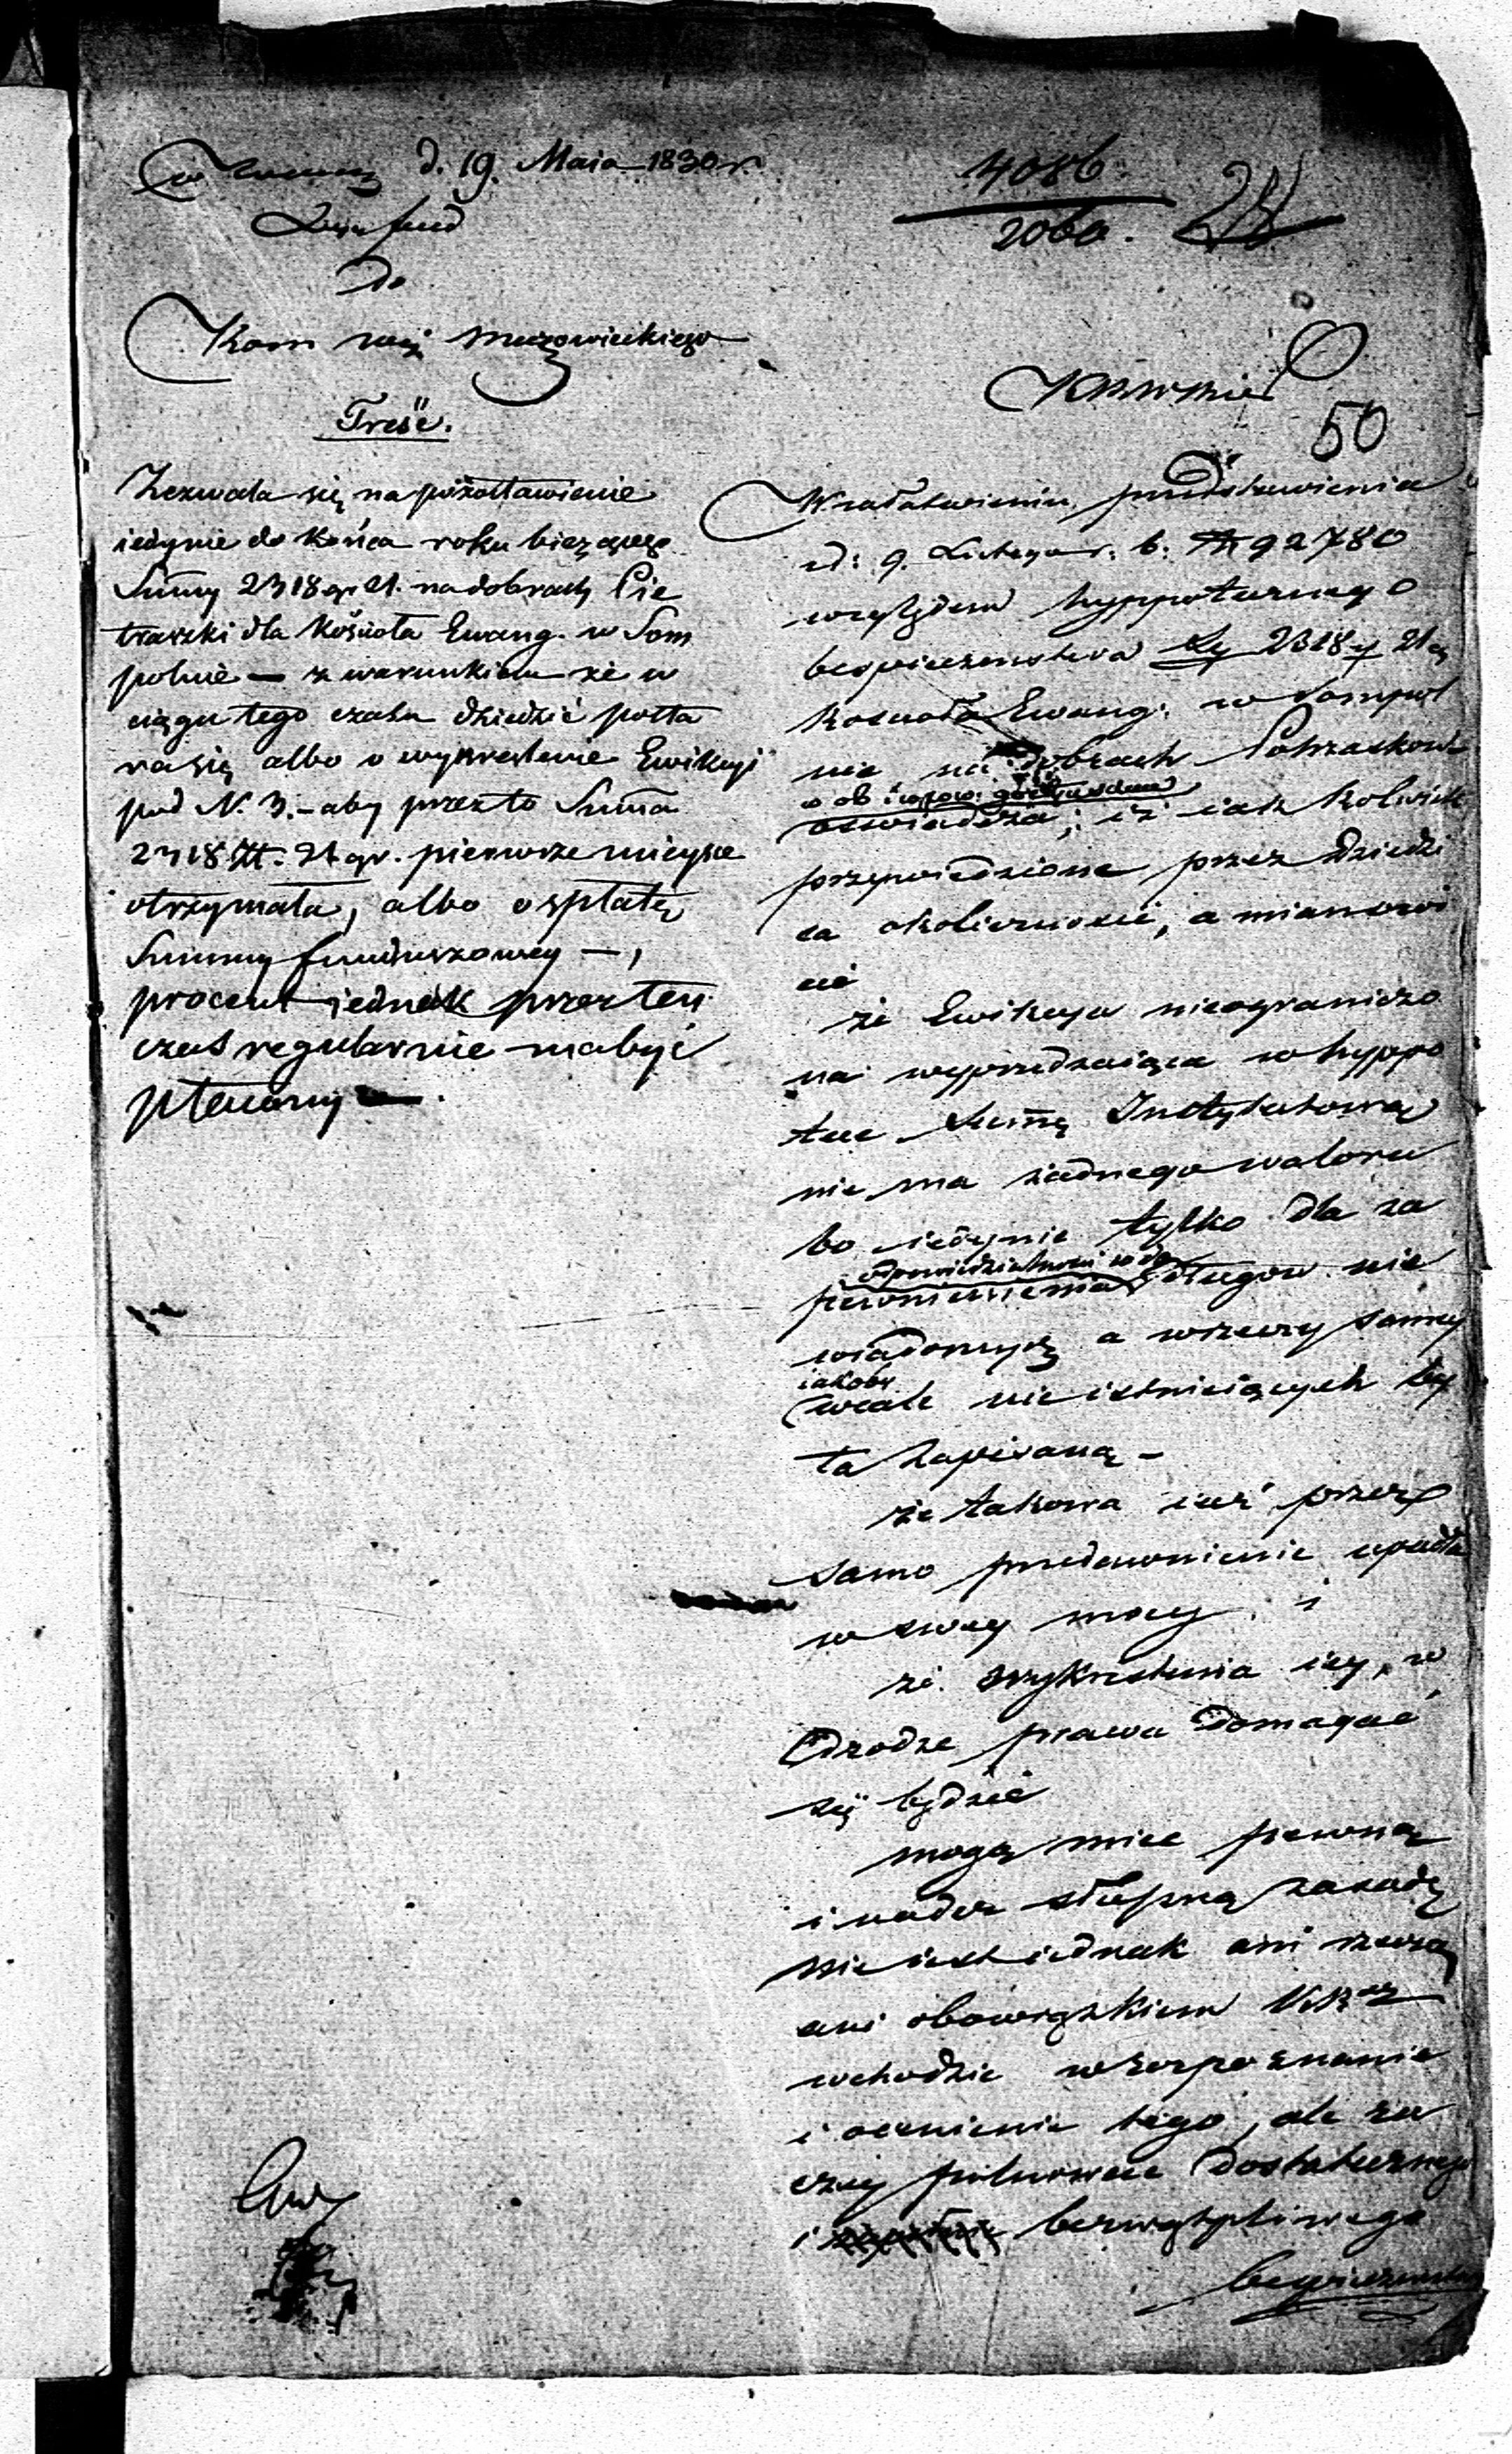 d. 19. Maia 1830 r.
4086.
2060.
24
do
Kom woj Mazowieckiego
50
Treść.
Zezwala się na pozostawienie
iedynie do końca roku bieżącego
Summy 2318 gr 21. na dobrach Pie
traszki dla kościoła Ewang. w Som
polnie — z warunkiem że w
ciągu tego czasu dziedzic posta
ra się albo o wykreslenie Ewikcyi
pod N. 3. - aby przez to Summa
2318 Zł. 21 gr. pierwsze mieysce
otrzymała, albo o spłatę
Summy funduszowey —,
procent iednak przez ten
czas regularnie ma być
płacony.
W załatwieniu przedstawienia
d: 9. Lutego r. b. N 92780
względem hyppotecznego
bespieczenstwa 2318 21
koscioła Ewang: w Sompol
nie, na dobrach
oswiadcza; iż iak kolwiek
przywiedzione przez dziedzi
ca okoliczności, a mianowi
cie
że Ewikcya nieograniczo
na wyprzedzaiąca w hyppo
tece Summę Instytutową
nie ma żadnego waloru
bo iedynie tylko dla za
odpowiedzialności
pewnienia długow nie
wiadomych a w rzeczy samey
iakoby
wcale nie istnieiących by
ła zapisaną -
że takowa iuż przez
samo przedawnienie upadła
w swey mocy i
że wykreslenia iey, w
drodze prawa domagać
się będzie
mogą miec pewną
i nader słuszną zasadę
nie iest iednak ani rzeczą
ani obowiązkiem
wchodzic w rozpoznanie
i ocenienie tego, ale ra
czey pilnowac dostatecznego
i bezwątpliwego
bespieczenstwa